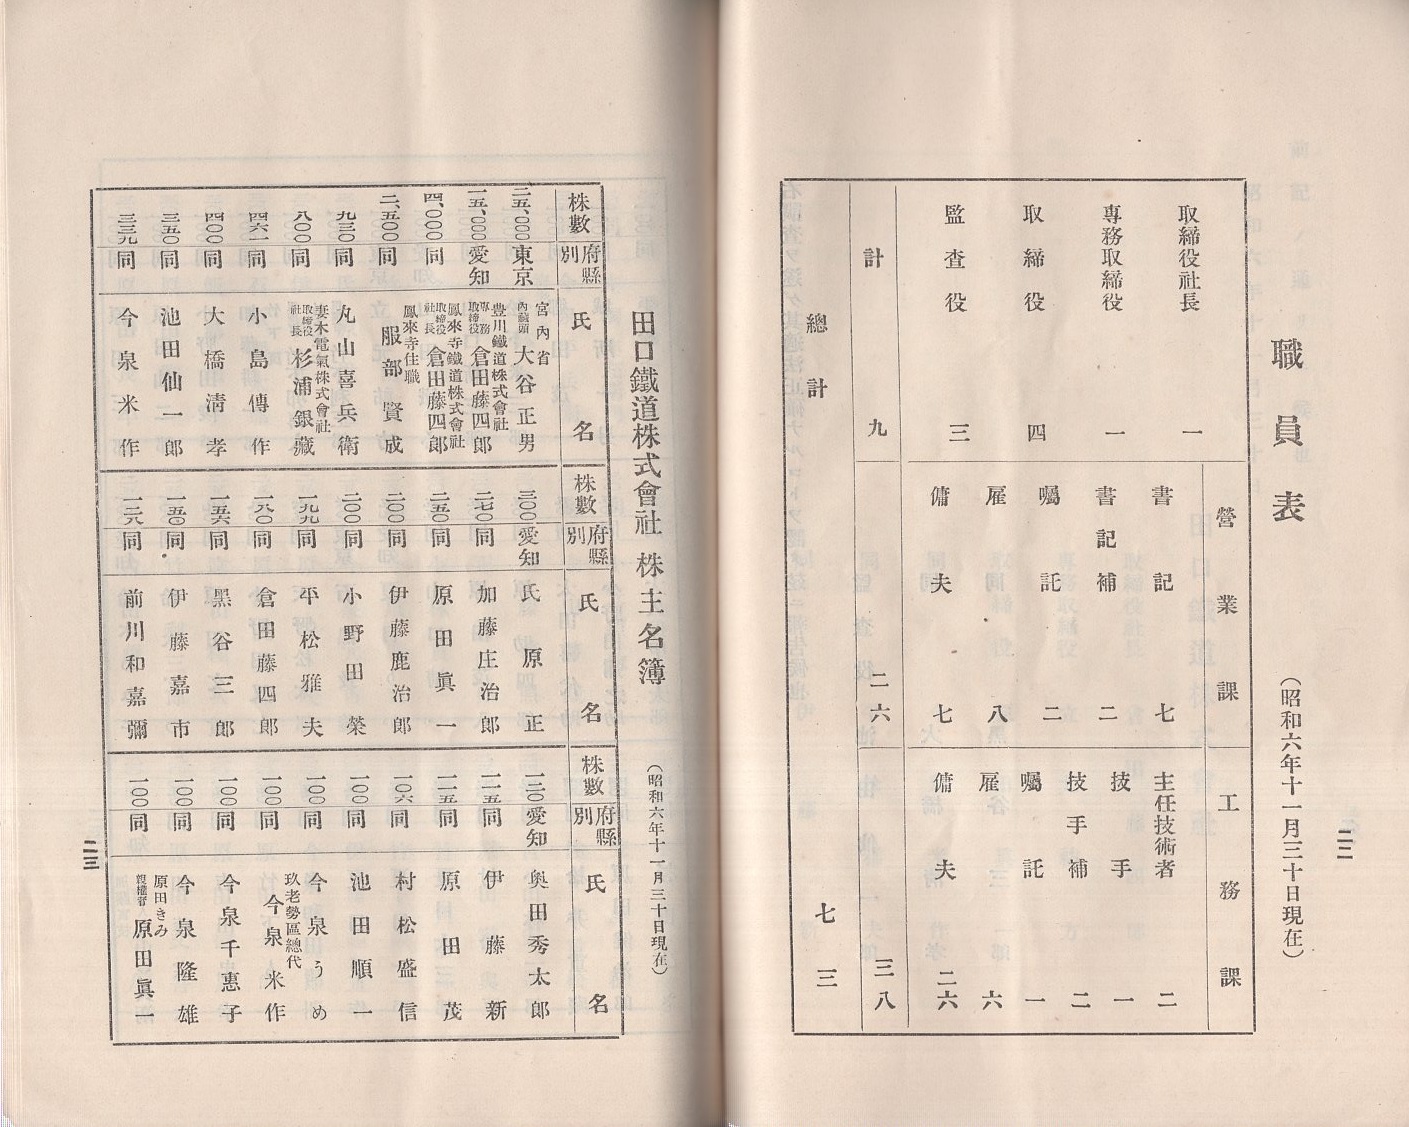 職員表
（昭和六年十一月三十日現在）
取締役社長 一
專務取締役 一
取締役 四
監査役 三
計 九
營業課
書記 七
書記補 二
囑託 二
雇 八
傭夫 七
二六
工務課
主任技術者 二
技手 一
技手補 二
囑託 一
雇 六
傭夫 二六
三八
總計 七三
二二
田口鐵道株式會社株主名簿
（昭和六年十一月三十日現在）
株數 府縣別 氏名
二五、〇〇〇 東京 宮內省 內藏頭 大谷正男
一五、〇〇〇 愛知 豊川鐵道株式會社 專務取締役 倉田藤四郎
四、〇〇〇 同 鳳來寺鐵道株式會社 取締役社長 倉田藤四郎
二、五〇〇 同 鳳來寺住職 服部賢成
九三〇 同 丸山喜兵衛
八〇〇 同 妻木電氣株式會社 取締役社長 杉浦銀藏
四六一 同 小島傳作
四〇〇 同 大橋淸孝
三五〇 同 池田仙一郎
三三九 同 今泉米作
株數 府縣別 氏名
三〇〇 愛知 氏原正
二七〇 同 加藤庄治郎
二五〇 同 原田眞一
二〇〇 同 伊藤鹿治郎
二〇〇 同 小野田榮
一九九 同 平松雅夫
一八〇 同 倉田藤四郎
一五六 同 黑谷三郎
一五〇 同 伊藤嘉市
一二八 同 前川和嘉彌
株數 府縣別 氏名
一二〇 愛知 奥田秀太郎
一一五 同 伊藤新
一一五 同 原田茂
一〇六 同 村松盛信
一〇〇 同 池田順一
一〇〇 同 今泉うめ
一〇〇 同 玖老勢區總代 今泉米作
一〇〇 同 今泉千惠子
一〇〇 同 今泉隆雄
一〇〇 同 原田きみ 親權者 原田眞一
二三